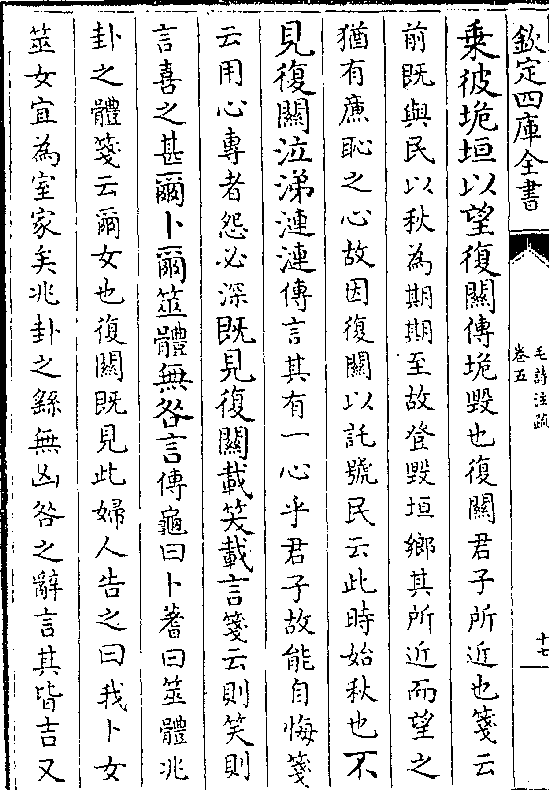 欽定四庫全書
毛詩注疏
卷五
十七
乗彼垝垣以望復關傳垝毀也復關君子所近也箋云
前既與民以秋為期期至故登毀垣鄉其所近而望之
猶有廉恥之心故因復關以託號民云此時始秋也不
見復關泣涕漣漣傳言其有一心乎君子故能自悔箋
云用心專者怨必深既見復關載笑載言箋云則笑則
言喜之甚爾卜爾筮體無咎言傳龜曰卜蓍曰筮體兆
卦之體箋云爾女也復關既見此婦人告之曰我卜女
筮女宜為室家矣兆卦之繇無凶咎之辭言其皆吉又